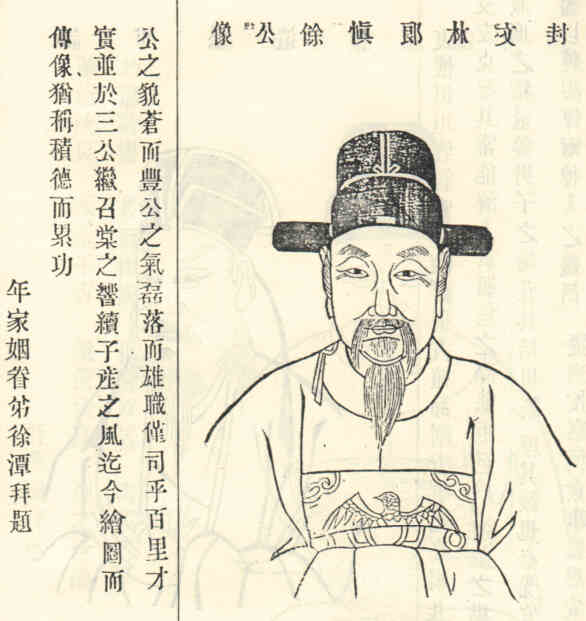 封文林郎慎餘公像
公之貌蒼而豐公之氣磊落而雄職僅司乎百里才
實並於三公繼召棠之響續子產之風迄今繪圖而
傳像猶稱積德而累功
年家姻眷弟徐潭拜題